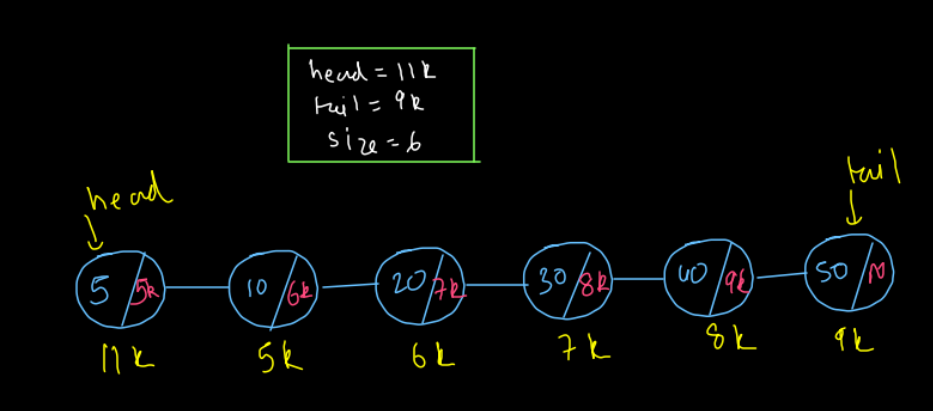 head = 11k
tail = 9k
size = 6
head
tail
5 / 5k
10 / 6k
20 / 7k
30 / 8k
40 / 9k
50 / N
11k
5k
6k
7k
8k
9k